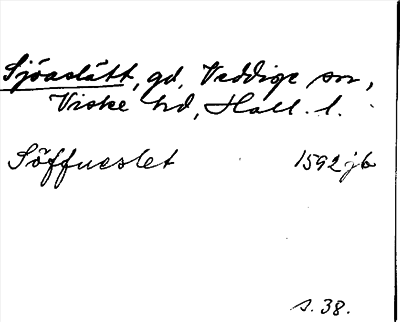 Sjöaslätt, gd, Veddige sn,
Viske hd, Hall. l.
Söffueslet 1592 jb
s. 38.